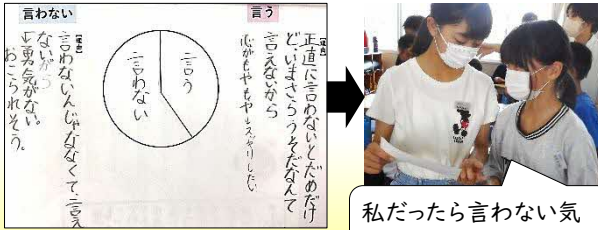 言う
【理由】
正直に言わないとだめだけ
ど、いまさらうそだなんて
言えないから
心がもやもや→スッキリしたい
言う
言わない
言わない
【理由】
言わないんじゃななくて、言え
ないから
勇気がない。
おこられそう。
私だったら言わない気